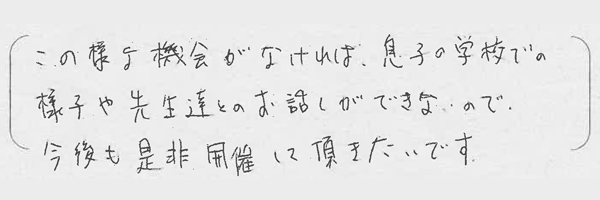 この様な機会がなければ、息子の学校での
様子や先生達とのお話しができないので、
今後も是非開催して頂きたいです。